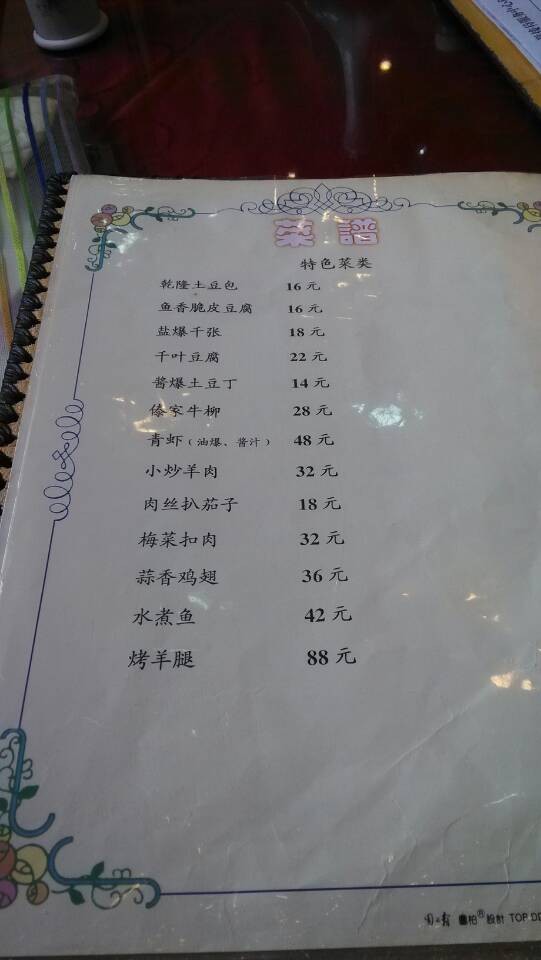 菜譜
特色菜类
乾隆土豆包 16元
鱼香脆皮豆腐 16元
盐爆千张 18元
千叶豆腐 22元
酱爆土豆丁 14元
傣家牛柳 28元
青虾（油爆、酱汁） 48元
小炒羊肉 32元
肉丝扒茄子 18元
梅菜扣肉 32元
蒜香鸡翅 36元
水煮鱼 42元
烤羊腿 88元
柏®設計 TOP